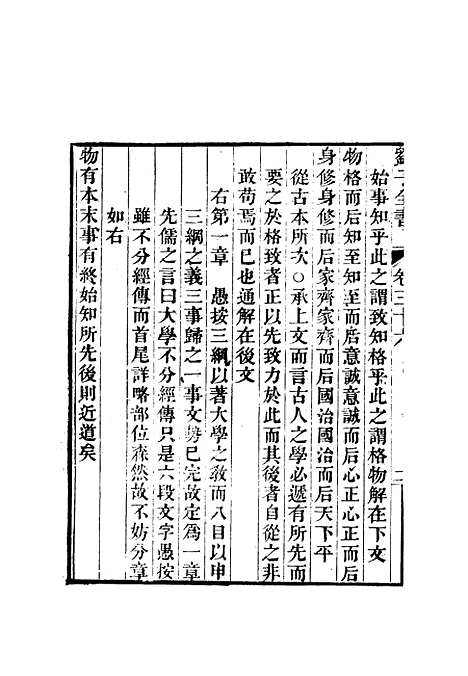 劉子全書
卷三十六
二
始事知乎此之謂致知格乎此之謂格物解在下文
物格而后知至知至而后意誠意誠而后心正心正而后
身修身修而后家齊家齊而后國治國治而后天下平
從古本所次○承上文而言古人之學必遞有所先而
要之於格致者正以先致力於此而其後者自從之非
敢苟焉而已也通解在後文
右第一章　愚按三綱以著大學之教而八目以申
三綱之義三事歸之一事文勢已完故定為一章
先儒之言曰大學不分經傳只是六段文字愚按
雖不分經傳而首尾詳略部位森然故不妨分章
如右
物有本末事有終始知所先後則近道矣